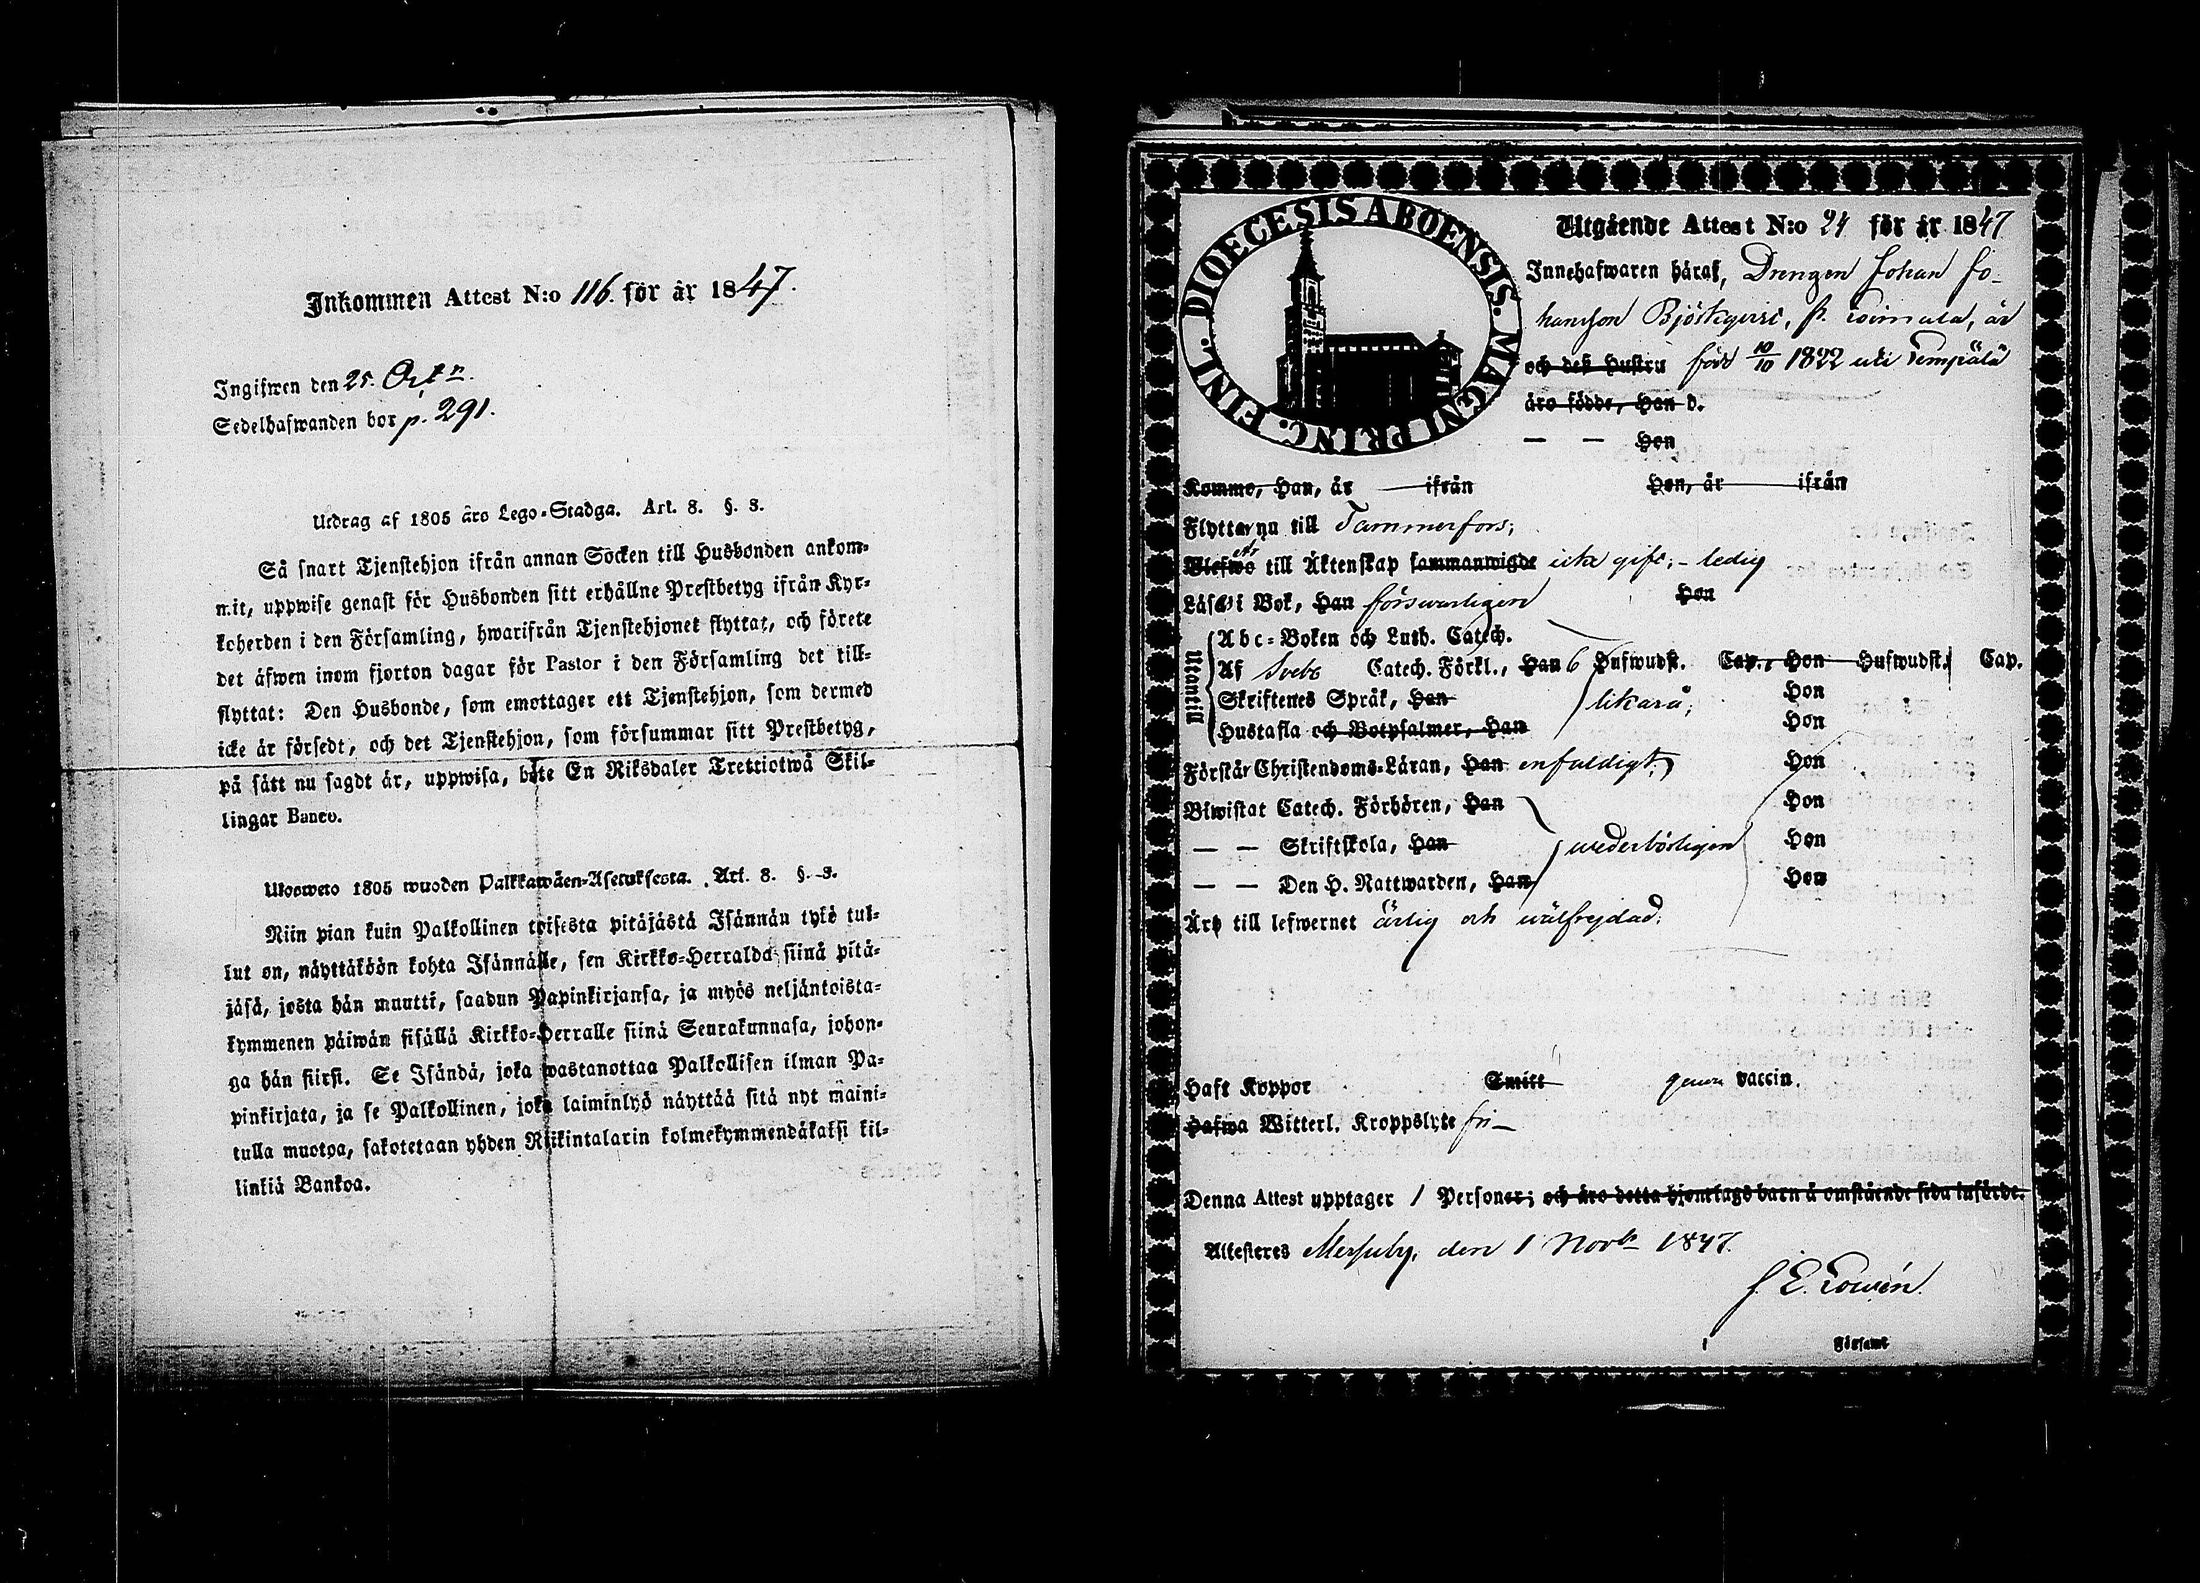 Inkommen Attest N:o 116. för år 1847.
Ingifwen den 25. Oct
Sedelhafwanden bor p. 291.
Utdrag af 1805 års Lego-Stadga. Art. 8. §. 3.
Så snart Tjenstehjon ifrån annan Socken till Husbonden ankom-
mit, uppwise genast för Husbonden sitt erhållne Prestbetyg ifrån Kyr-
koherden i den Församling, hwarifrån Tjenstehjonet flyttat, och förete
det äfwen inom fjorton dagar för Pastor i den Församling det till-
flyttat: Den Husbonde, som emottager ett Tjenstehjon, som dermed
icke är försedt, och det Tjenstehjon, som försummar sitt Prestbetyg,
på sätt nu sagdt är, uppwisa, böte En Riksdaler Trettiotwå Skil-
lingar Banco.
Ulosweto 1805 wuoden Palkkawäen-Asetuksesta. Art. 8. §. 3.
Niin pian kuin Palkollinen toisesta pitäjästä Isännän tykö tul-
lut on, näyttäköön kohta Isännälle, sen Kirkko-Herralda siinä pitä-
jäsä, josta hän muutti, saadun Papinkirjansa, ja myös neljäntoista-
kymmenen päiwän sisällä Kirkko-Herralle siinä Seurakunnasa, johon-
ga hän siirsi. Se Isändä, joka wastanottaa Palkollisen ilman Pa-
pinkirjata, ja se Palkollinen, joka laiminlyö näyttää sitä nyt maini-
tulla muotoa, sakotetaan yhden Riikintalarin kolmekymmendäkaksi kil-
linkiä Bankoa.
DIOECESIS ABOENSIS. MAGNI PRINC. FINL.
Utgående Attest N:o 24 för år 1847
Innehafwaren häraf, Drengen Johan Jo-
hansson Björkqvist, fr. Loimala, är
och dess Hustru född 10/10 1822 uti Lempälä
äro födde, Han d.
— — Hon
Komme, Han, år — ifrån Hon, år — ifrån
Flyttar nu till Tammerfors;
Blefwo är till Äktenskap sammanwigde icke gift; - ledig
Läser i Bok, Han förswarligen Hon
Utantill
Abc-Boken och Luth. Catech.
Af Svebe Catech. Förkl., Han 6 Hufwudst. Cap., Hon Hufwudst. Cap.
Skriftenes Språk, Han likaså; Hon
Hustafla och Botpsalmer, Han Hon
Förstår Christendoms-Läran, Han enfaldigt; Hon
Biwistat Catech. Förhören, Han Hon
— — Skriftskola, Han wederbörligen Hon
— — Den H. Nattwarden, Han Hon
Är till lefwernet ärlig och wälfrejdad;
Haft Koppor Smitt genom vaccin.
Hafwa Witterl. Kroppslyte fri —
Denna Attest upptager 1 Personer; och äro detta hjonelags barn å omstående sida införde.
Attesteres Messuby, den 1 Novbr 1847.
Församl